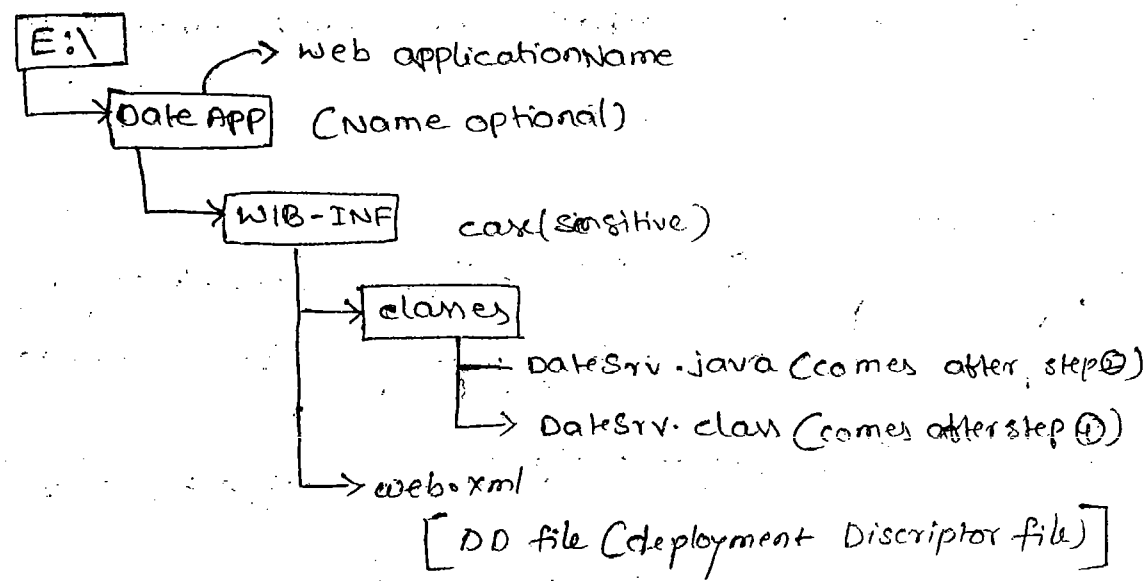 E:\
web applicationName
Date APP (Name optional)
WIB-INF case(sensitive)
classes
DateSrv.java (comes after step②)
DateSrv.class (comes after step④)
web.xml
[DD file (deployment Discriptor file)]